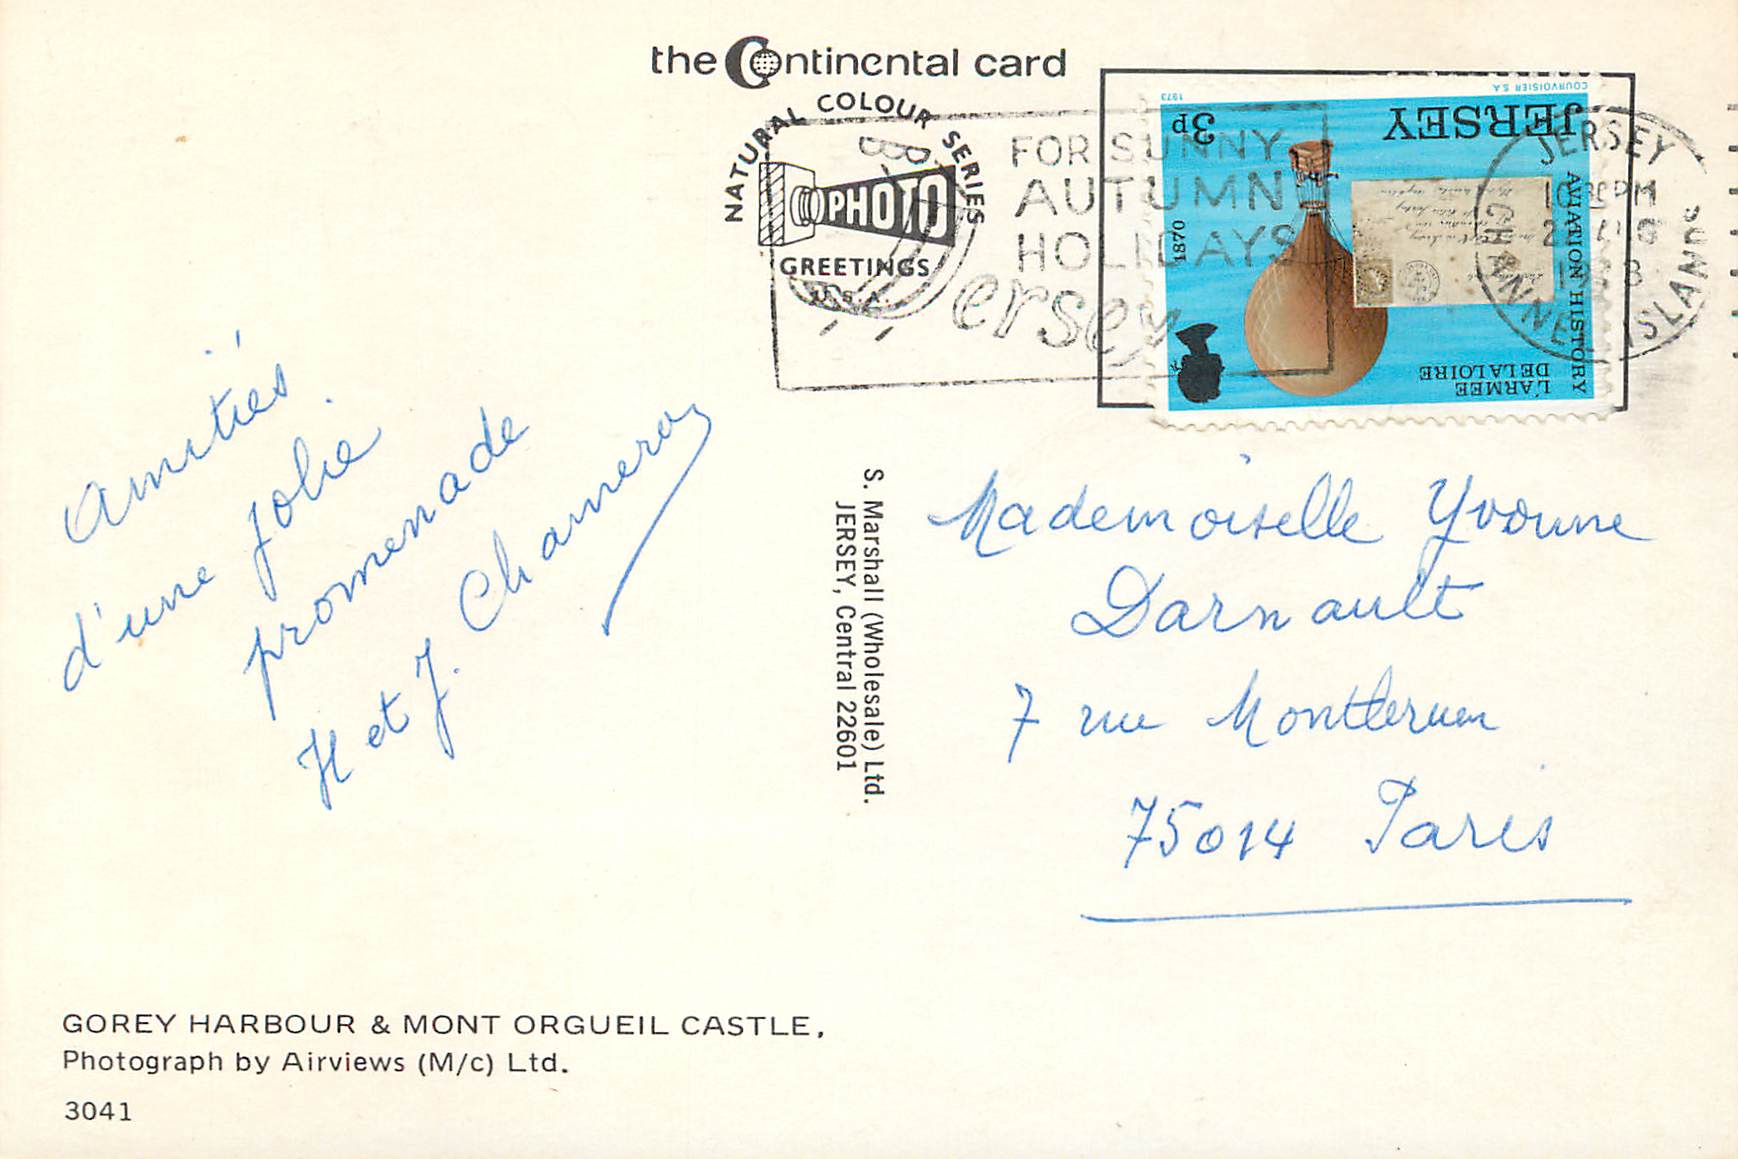 the Continental card
NATURAL COLOUR SERIES
PHOTO
GREETINGS
U.S.A.
FOR SUNNY
AUTUMN
HOLIDAYS
Jersey
JERSEY
CHANNEL ISLANDS
1973
COURVOISIER S.A.
3p
JERSEY
1870
AVIATION HISTORY
L'ARMEE
DE LA LOIRE
amitiés
d'une jolie
promenade
H et J. Chameroy
S. Marshall (Wholesale) Ltd.
JERSEY, Central 22601
Mademoiselle Yvonne
Darnault
7 rue
75014 Paris
GOREY HARBOUR & MONT ORGUEIL CASTLE,
Photograph by Airviews (M/c) Ltd.
3041